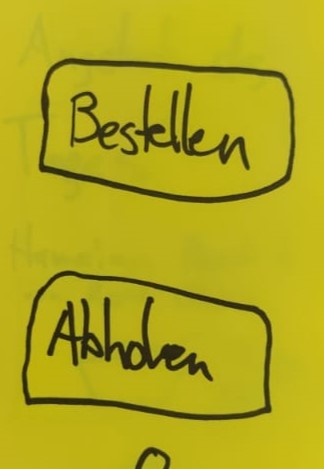 Bestellen
Abholen